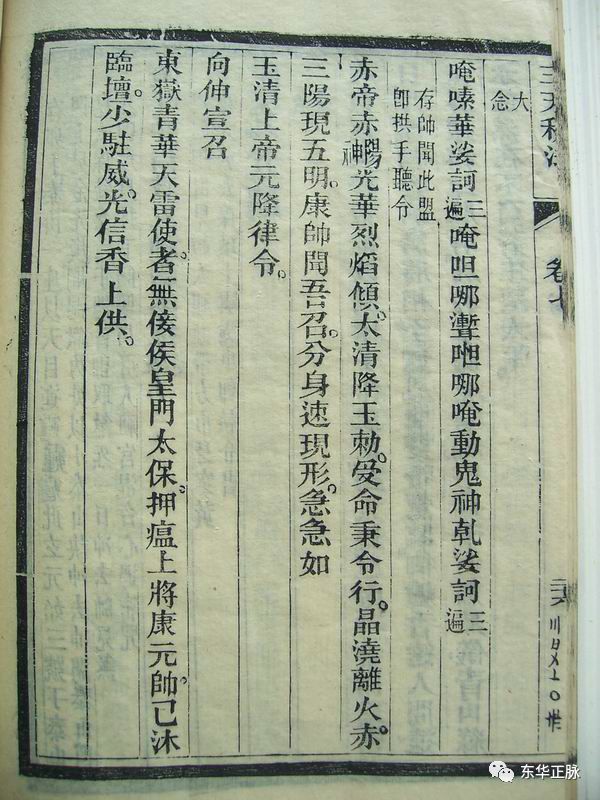 三天秘法 卷七
大
念
唵嗪華娑訶三遍唵呾哪呾哪唵動鬼神乹娑訶三遍
存帥聞此盟
卽拱手聽令
赤帝赤暘神光華烈焰傾。太清降玉勅。受命秉令行。晶澆離火赤。
三陽現五明。康帥聞吾召。分身速現形。急急如
玉清上帝元降律令。
向伸宣召
東嶽青華天雷使者。無佞侯皇門太保。押瘟上將康元帥。已沐
臨壇。少駐威光。信香上供。
东华正脉